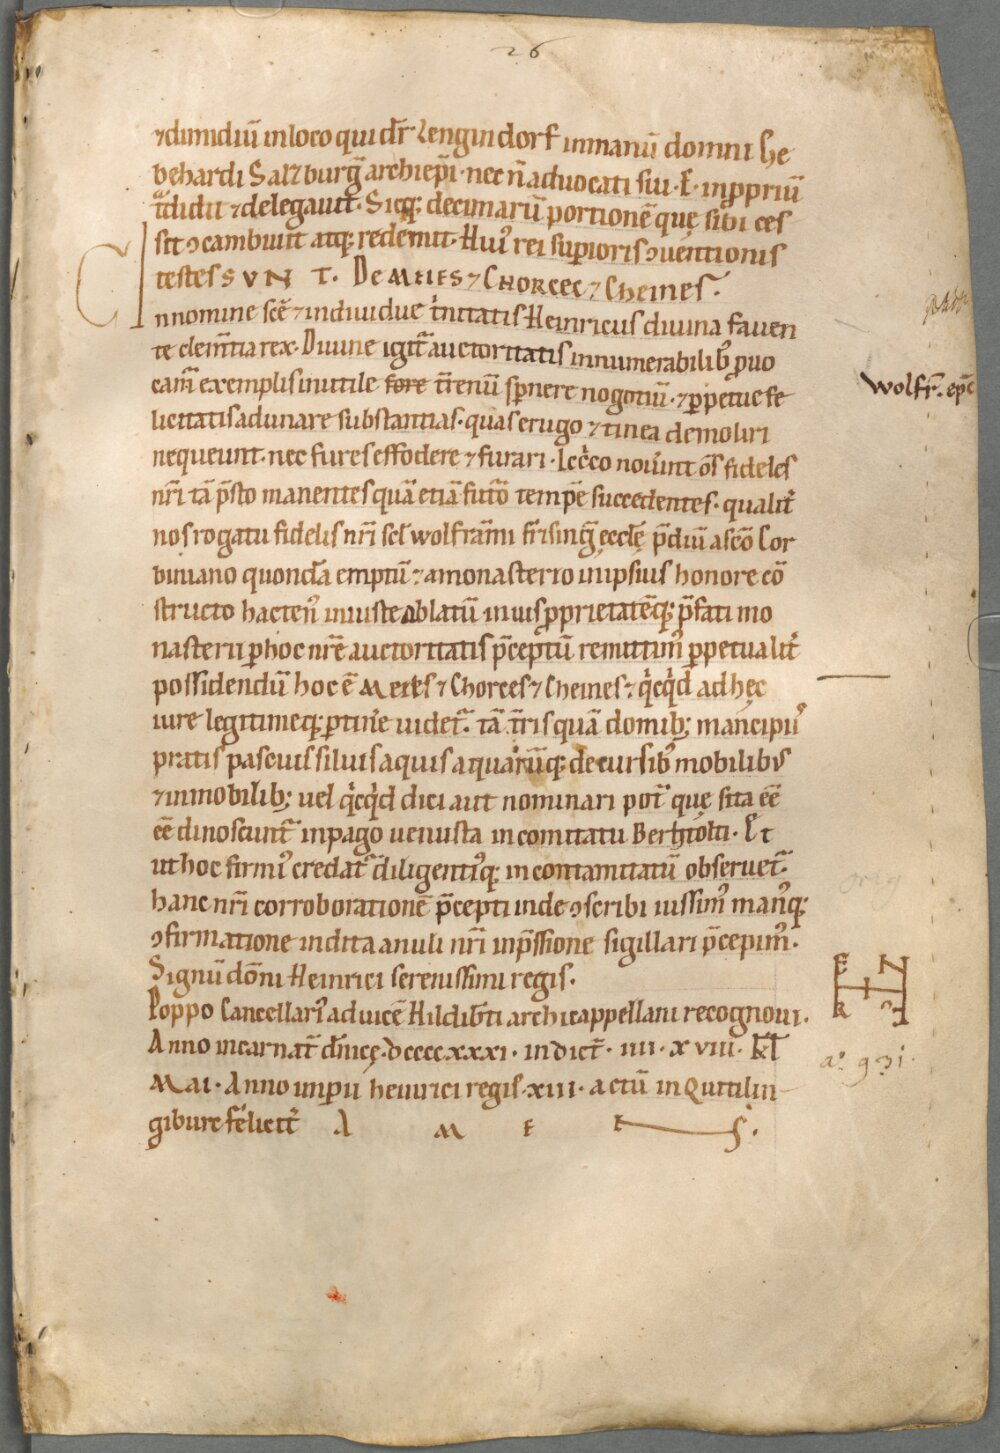 26
⁊dimidiū inloco qui dr̄ Lengindorf inmanū domni he
behardi Salzburḡ archiep̄i · nec n̄ aduocati sui · E · inp̱priū
t͛didit ⁊delegauit · Sicq; decimarū portionē quę sibi ces
sit ↄcambiuit atq; redemit · Hui᷒ rei sup̱ioris ↄuentionis
testes SVNT. De MAIES ⁊ CHORCEC ⁊ Cheines.
Innomine sc̄ę ⁊indiuidue t'nitatis Heinricus diuina fauen
te clem̄tia rex · Diuine igit᷑ auctoritatis innumerabilib᷒ p̱uo
cam᷑ exemplis inutile fore t̄renū sp̱nere negotiū · ⁊p̱petue fe
licitatis adunare substantias · quas erugo ⁊ tinea demoliri
nequeunt · nec fures effodere ⁊ furari ·
nr̄i tā p̄sto manentes quā etiā fut᷑o temp̱e succedentes · qualit᷑
nos rogatu fidelis nr̄i scl̄ wolframi frisinḡ ecclę p̄diū a sc̄o Cor
biniano quondā emptū ⁊ amonasterio inipsius honore cō
structo hacten᷒ iniuste ablatū inius p̱prietatēq; p̄fati mo
nasterii p̱ hoc nr̄e auctoritatis p̄ceptū remittim᷒ p̱petualit᷑
possidendū hoc ē Meies ⁊ Chorces ⁊ Cheines ⁊ q'cq'd ad hęc
iure legitimeq; p̱tin̄e uidet᷑ · tā t̄ris quā domib; mancipii᷒
pratis pascuis siluis aquis aquarūq; decursib᷒ mobilibus
⁊inmobilib; uel q'cq'd dici aut nominari pot᷑ quę sita ēē
ēē dinoscunt᷑ inpago uenusta incomitatu Berhtolti · Et
ut hoc firmi᷒ credat᷑ diligenti᷒q; incontamitatū obseruet᷑ ·
hanc nr̄i corroborationē p̄cepti inde ↄscribi iussim᷒ man᷒q;
ↄfirmatione indita anuli nr̄i inp̄ssione sigillari p̄cepim᷒ ·
Signū dōni Heinrici serenissimi regis ·
Poppo Cancellari᷒ aduicē Hildib᷑ti archicappellani recognoui ·
Anno incarnat᷑ dn̄icę · dcccc xxxi · indict᷑ · iiii · xviii · kł
Mai · Anno inp̱ii heinrici regis · xiii · actū inQuitilin
giburc felicit᷑ A M E S.
wolfr̄. ep̄c
orig
E N
R
a° 931.